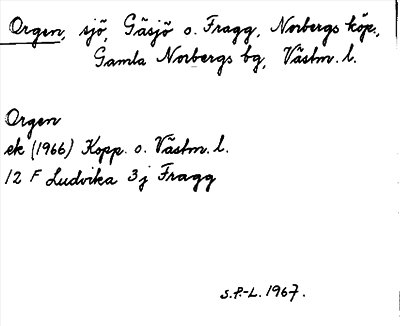 Orgen, sjö, Gäsjö o. Fragg, Norbergs köp.,
Gamla Norbergs bg, Västm. l.
Orgen
ek (1966) Kopp. o. Västm. l.
12 F Ludvika 3j Fragg
S.P.-L. 1967.